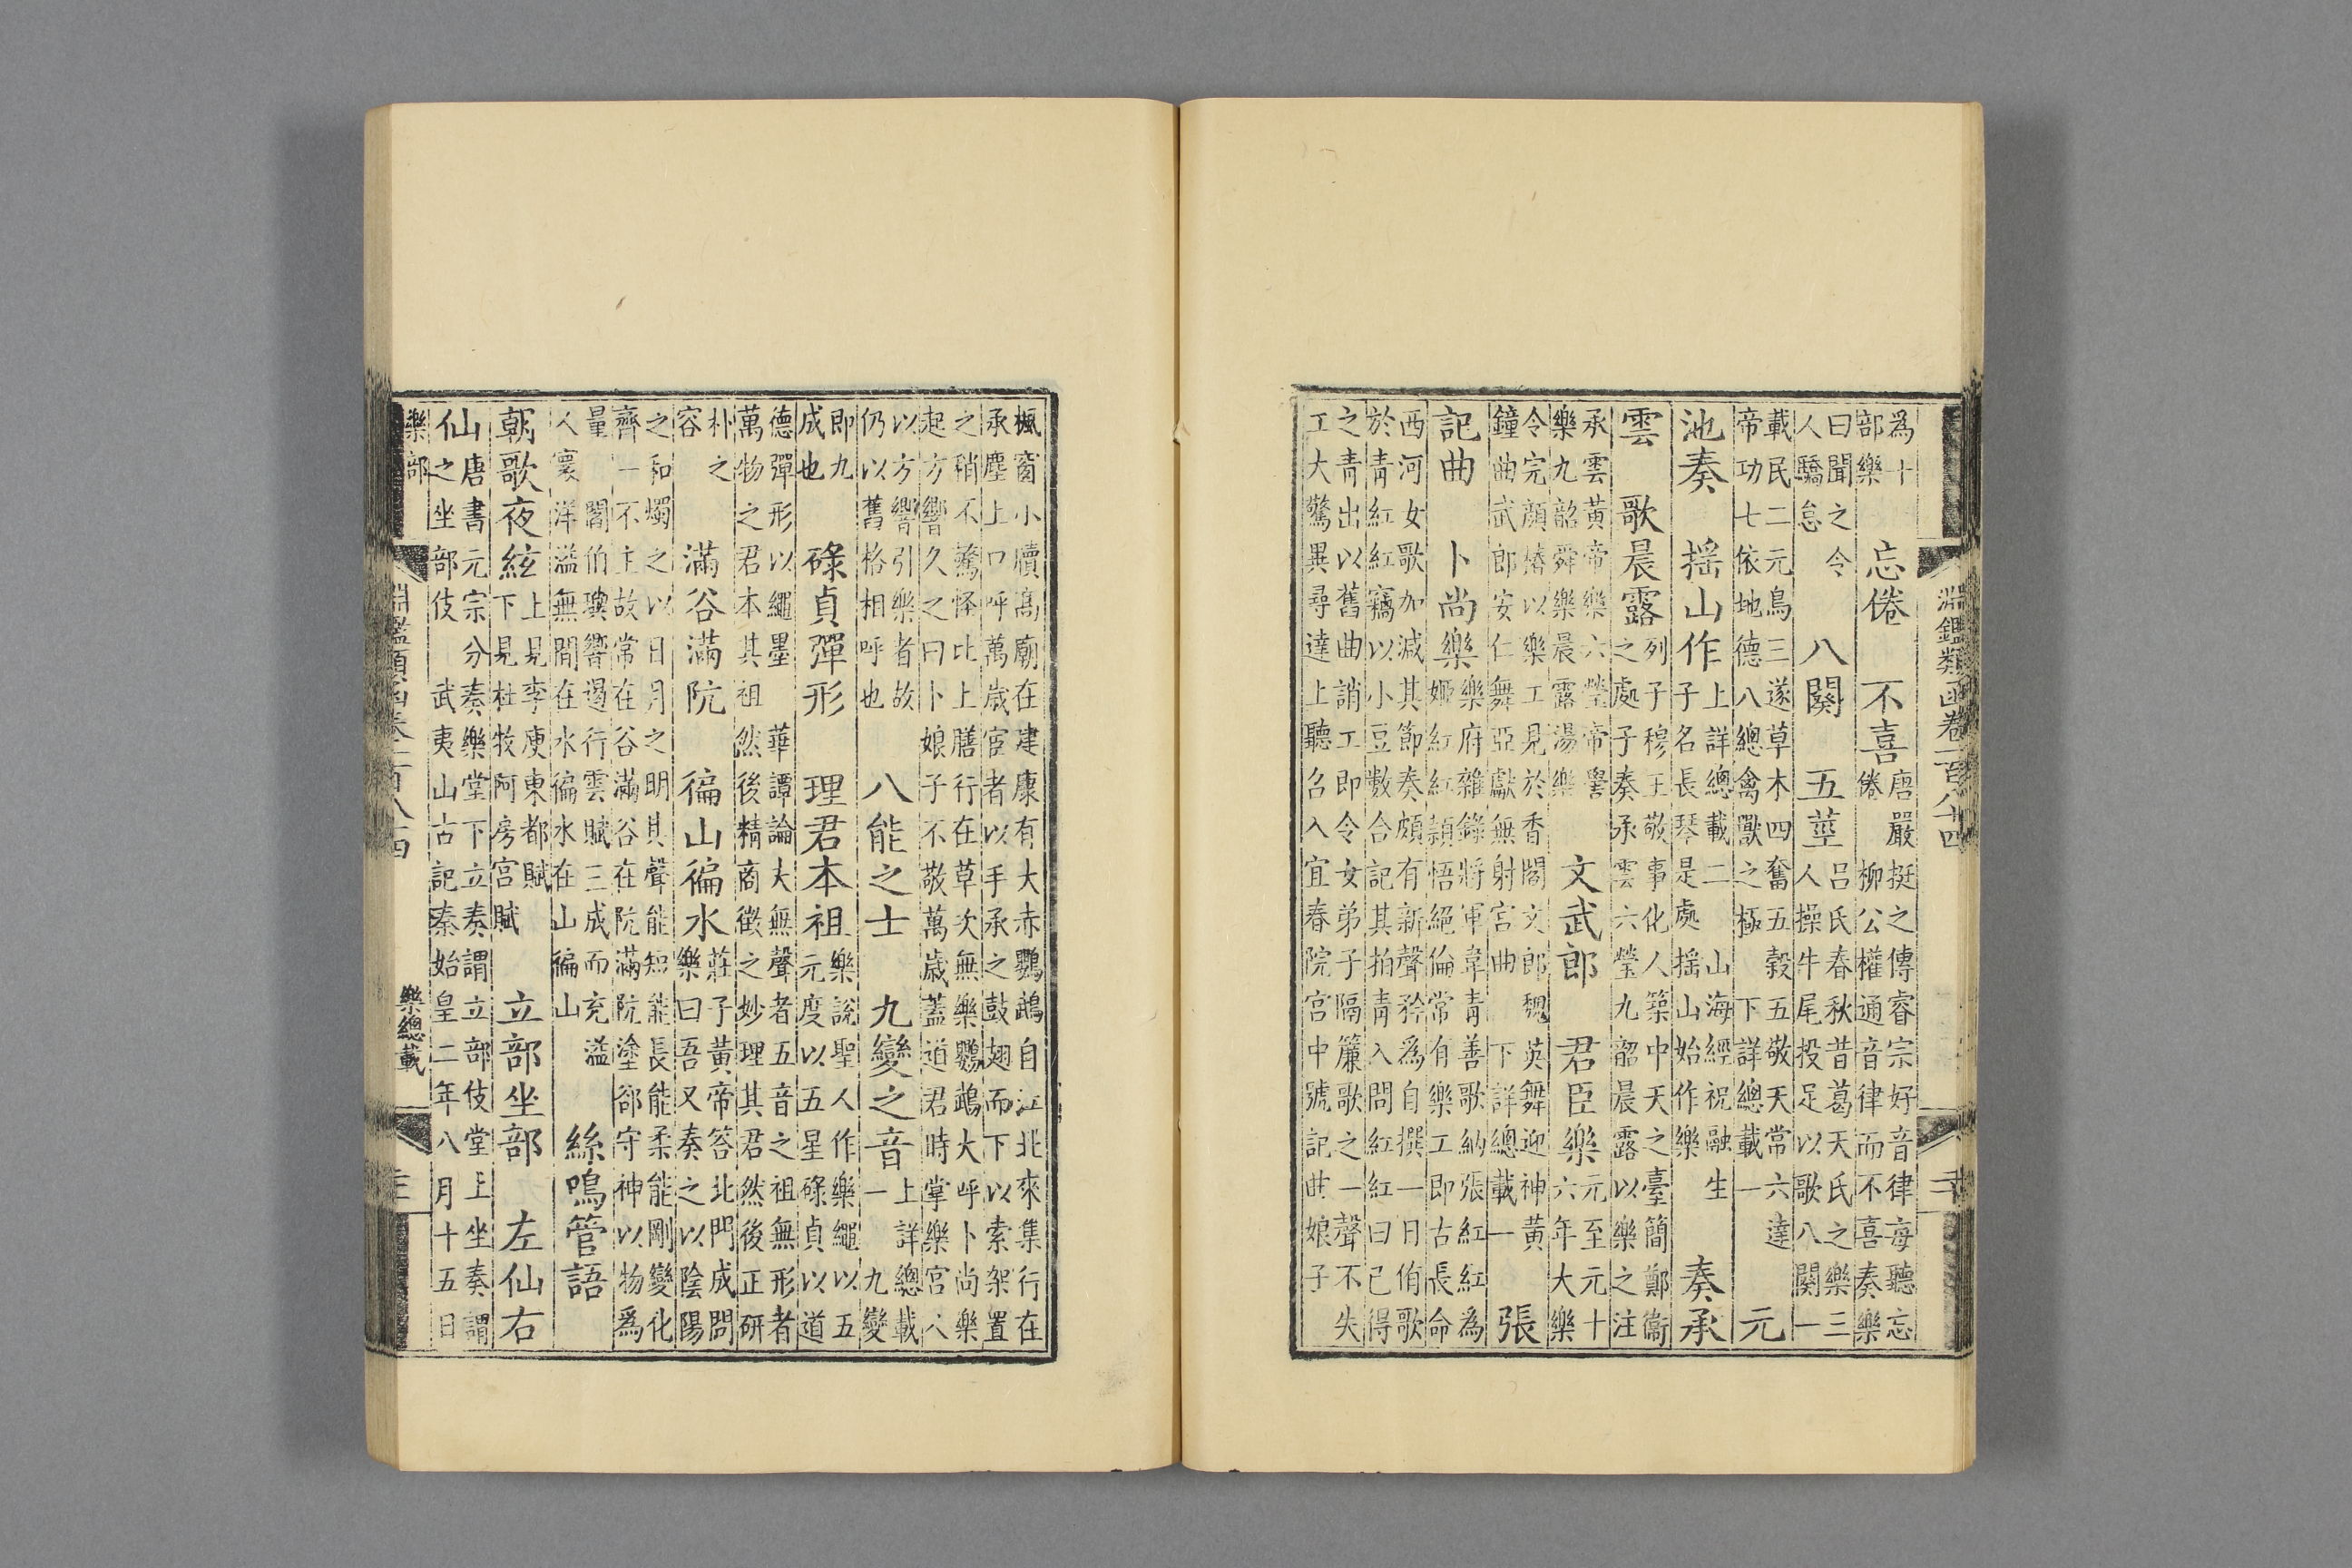 淵鑑類函卷一百八十四
二十
爲十
部樂
忘倦 不喜
唐嚴挺之傳睿宗好音律每聽忘
倦 柳公權通音律而不喜奏樂
曰聞之令
人驕怠
八闋 五莖
呂氏春秋昔葛天氏之樂三
人操牛尾投足以歌八闋一
載民二元鳥三遂草木四奮五穀五敬天常六達
帝功七依地德八總禽獸之極 下詳總載一
元
池奏 搖山作
上詳總載二 山海經祝融生
子名長琴是處搖山始作樂
奏承
雲 歌晨露
列子穆王敬事化人築中天之臺簡鄭衞
之處子奏承雲六瑩九韶晨露以樂之注
承雲黃帝樂六瑩帝嚳
樂九韶舜樂晨露湯樂
文武郎 君臣樂
元至元十
六年大樂
令完顏椿以樂工見於香閣文郎魏英舞迎神黃
鐘曲武郎安仁舞亞獻無射宮曲 下詳總載一
張
記曲 卜尚樂
樂府雜錄將軍韋青善歌納張紅紅爲
姬紅紅穎悟絕倫常有樂工即古長命
西河女歌加減其節奏頗有新聲矜爲自撰一日侑歌
於青紅紅竊以小豆數合記其拍青入問紅紅曰已得
之青出以舊曲誚工即令女弟子隔簾歌之一聲不失
工大驚異尋達上聽召入宜春院宮中號記曲娘子
楓窗小牘萬廟在建康有大赤鸚鵡自江北來集行在
承塵上口呼萬歲宦者以手承之鼓翅而下以索架置
之稍不驚怪比上膳行在草次無樂鸚鵡大呼卜尚樂
起方響久之曰卜娘子不敬萬歲蓋道君時掌樂宮人
以方響引樂者故
仍以舊格相呼也
八能之士 九變之音
上詳總載
一 九變
即九
成也
碌貞彈形 理君本祖
樂說聖人作樂繩以五
元度以五星碌貞以道
德彈形以繩墨 華譚論大無聲者五音之祖無形者
萬物之君本其祖然後精商徵之妙理其君然後正研
朴之
容
滿谷滿阬 徧山徧水
莊子黃帝答北門成問
樂曰吾又奏之以陰陽
之和燭之以日月之明其聲能短能長能柔能剛變化
齊一不主故常在谷滿谷在阬滿阬塗郤守神以物爲
量 閻伯璵響遏行雲賦三成而充溢
人寰洋溢無間在水徧水在山徧山
絲鳴管語
朝歌夜絃
上見李庾東都賦
下見杜牧阿房宮賦
立部坐部 左仙右
仙
唐書元宗分奏樂堂下立奏謂立部伎堂上坐奏謂
之坐部伎 武夷山古記秦始皇二年八月十五日
樂部
淵鑑類函卷一百八十四
樂總載